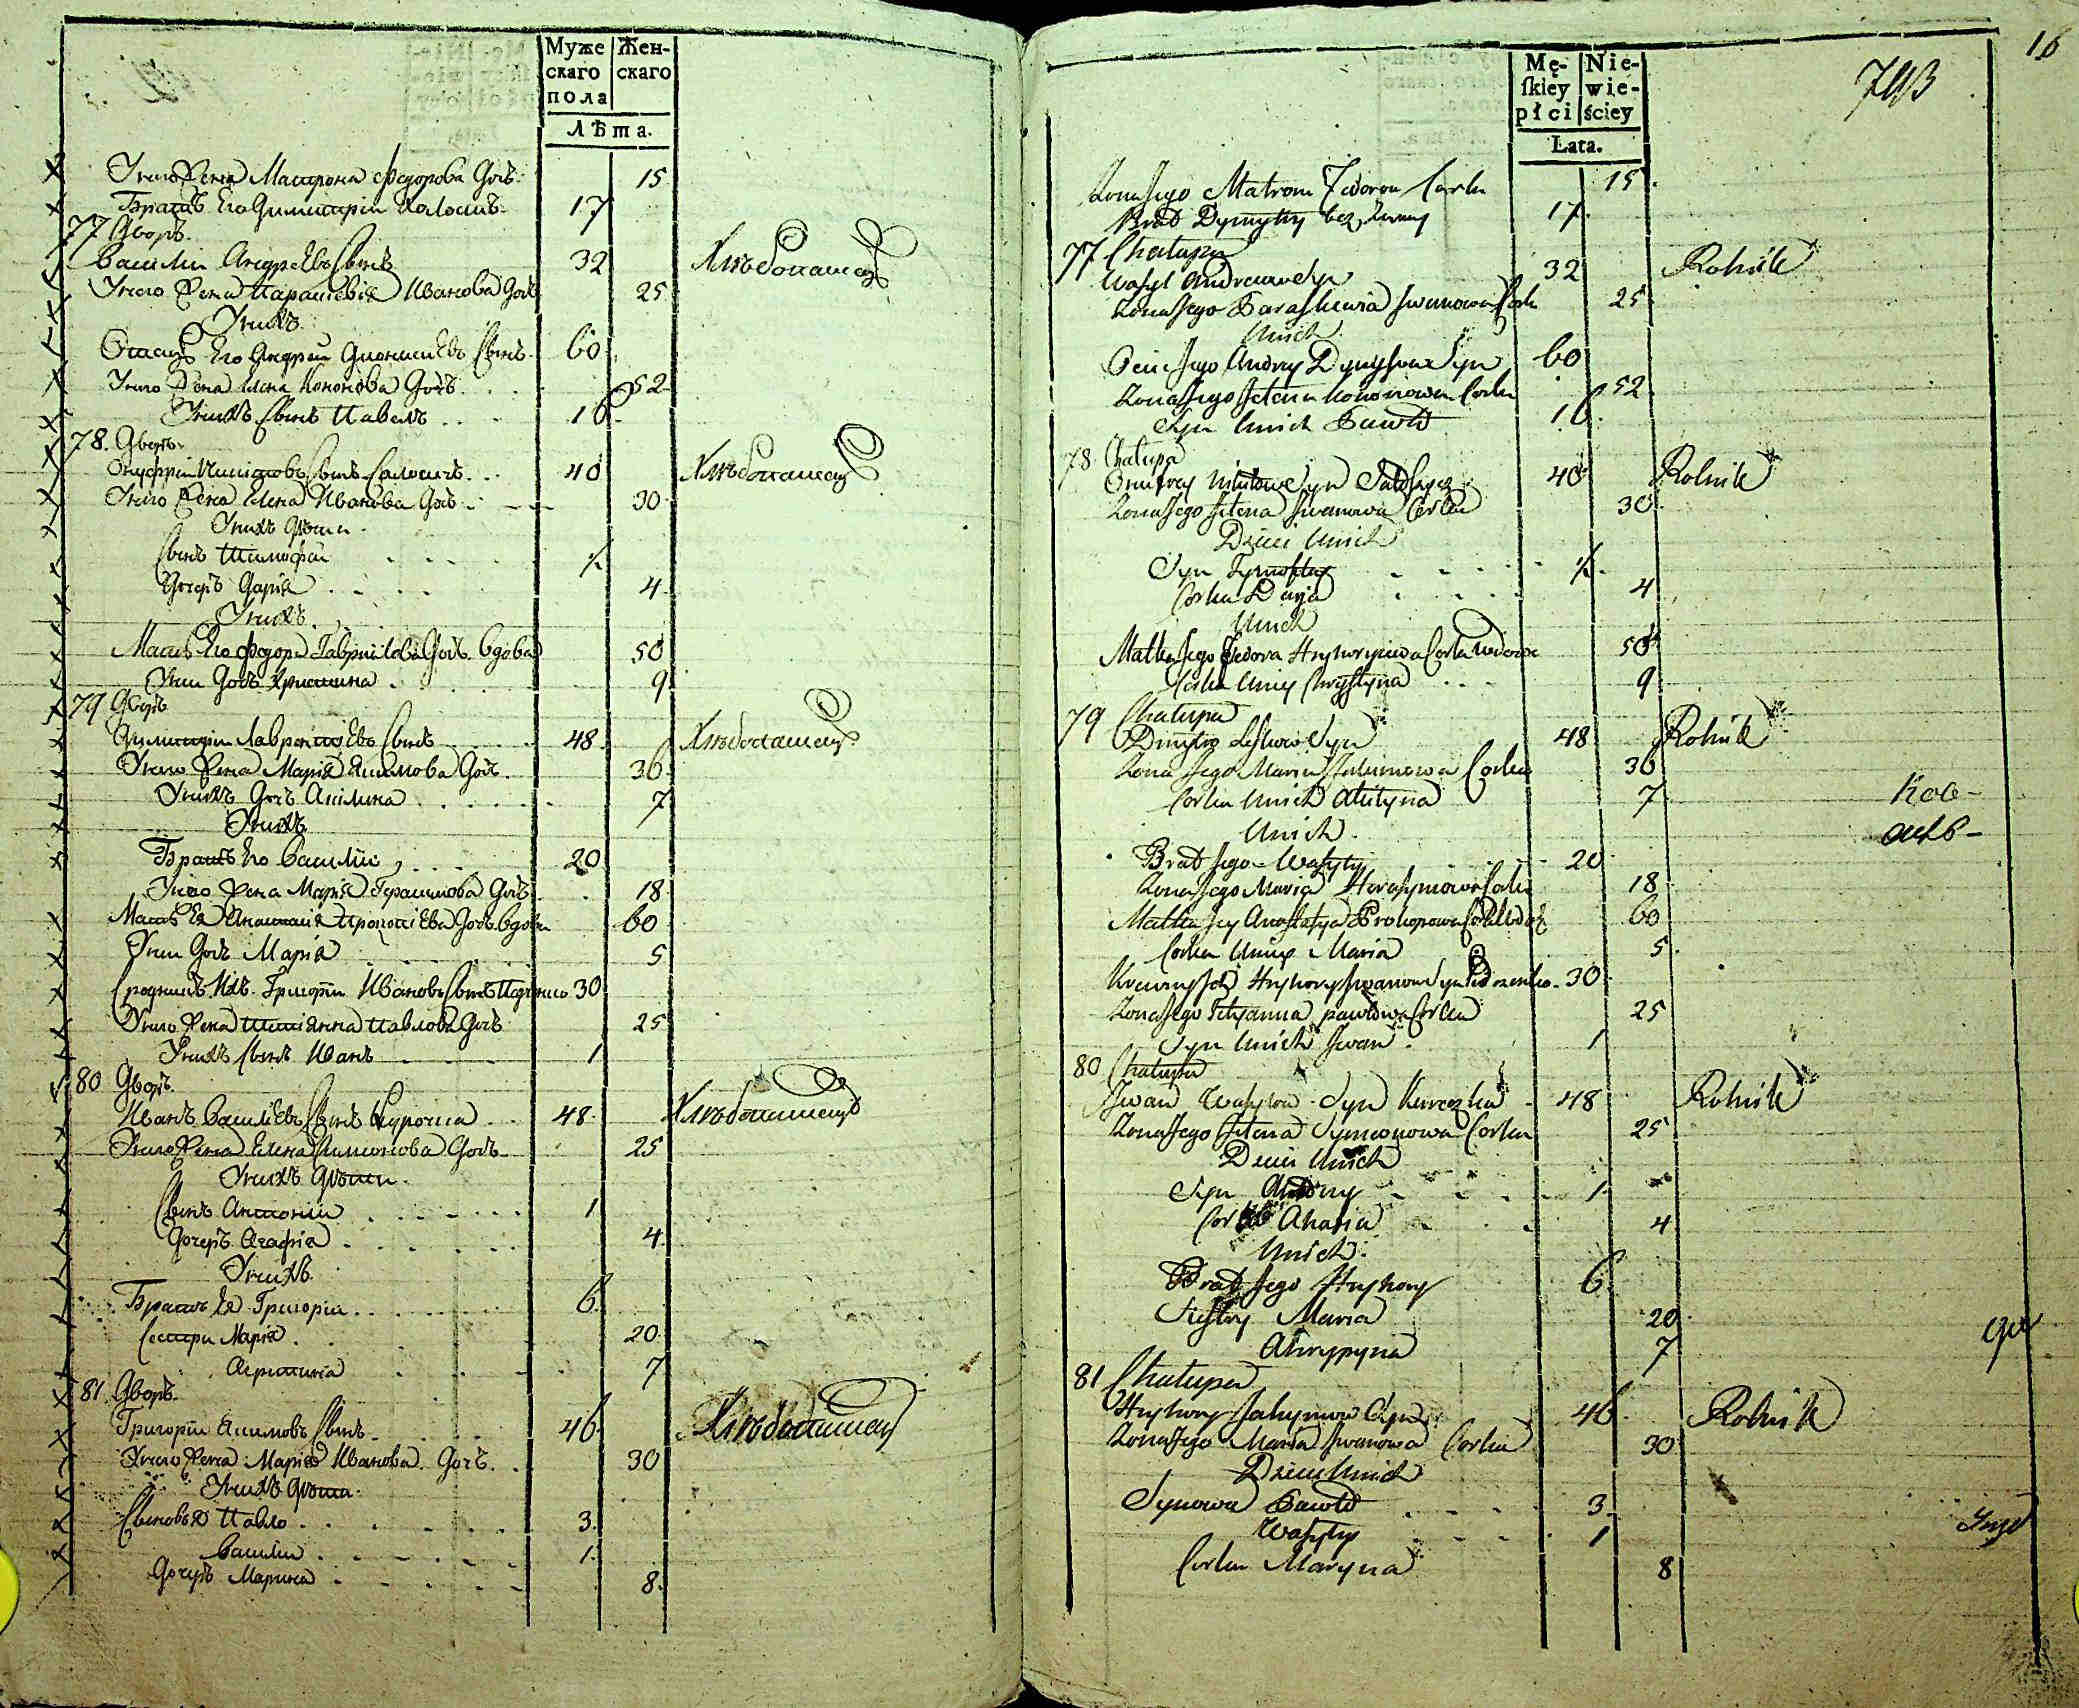 Муже Жен-
скаго скаго
пола
Лѣта.
Унего Жена Матрона Федорова Дочь. 15
Братъ Его Димитрій Холостъ. 17
77 Дворъ.
Василій Андреевъ Сынъ 32 Хлѣбопашецъ
Унего Жена Параскевія Иванова Дочь 25
Унихъ
Отецъ Его Андрей Дионисіевъ Сынъ. 60
Унего Жена Елена Кононова Дочь. 52
Унихъ Сынъ Павелъ 16
78. Дворъ.
Онуфрій Сынъ 40 Хлѣбопашецъ
Унего Жена Елена Иванова Дочь 30
Унихъ Дѣти.
Сынъ Тимофей ½
Дочерь Дарія 4
Унихъ
Мать Его Федора Дочь. Вдова 50
Унеи Дочь Христина 9
79 Дворъ
Димитрій Сынъ 48 Хлѣбопашецъ
Унего Жена Марія Якимова Дочь. 36
Унихъ Дочь Акилина 7
Унихъ
Братъ Его Василій 20
Унего Жена Марія Герасимова Дочь 18
Мать Ея Анастасія Дочь Вдова 60
Унеи Дочь Марія 5
Сродникъ Ихъ Григорій Ивановъ Сынъ 30
Унего Жена Татіянна Павлова Дочь 25
Унихъ Сынъ Иванъ 1
80 Дворъ.
Иванъ Василіевъ Сынъ Курочка 48 Хлѣбопашецъ
Унего Жена Елена Симонова Дочь 25
Унихъ Дѣти.
Сынъ Антоній 1
Дочерь Агафія 4
Унихъ
Братъ Ея Григорій 6
Сестри Марія 20
Агрипина 7
81 Дворъ.
Григорій Акимовъ Сынъ 46 Хлѣбопашецъ
Унего Жена Марія Иванова Дочь. 30
Унихъ Дѣти.
Сыновья Павло 3
Василій 1
Дочерь Марина 8
16
793
Mę- Nie-
ſkiey wie-
płci ściey
Łata.
Zona Jego Matrona Fedorow Corka 15
Brat Dymytry bez Zenny 17
77 Chałupa
Wasyl Andreiow Syn 32 Rolnik
Zona Jego Paraskewia Iwanowa Corka 25
Unich
Ociec Jego Andrey Dynysow Syn 60
Zona Jego Jelena Kononowa Corka 52
Syn Unich Pawło 16
78 Chałupa
Onufrey Syn 40 Rolnik
Zona Jego Jelena Iwanowa Corka 30
Dzieci Unich
Syn Tymofiey ½
Corka Darja 4
Unich
Matka Jego Fedora Hryhoryiowa Corka Wdowa 50
Corka Uniey Chrystyna 9
79 Chałupa
Dmytro Syn 48 Rolnik
Zona Jego Maria Jakimowa Corka 36
Corka Unich Akilyna 7
Unich
Brat Jego Wasyly 20
Zona Jego Maria Herasymowa Corka 18
Matka Jey Anastasya Prokopowa Corka 60
Corka Uniey Maria 5
Krewny Ich Hryhory Iwanow Syn 30
Zona Jego Tetyanna Pawłowa Corka 25
Syn Unich Iwan 1
80 Chałupa
Iwan Wasylow Syn Kuroczka 48 Rolnik
Zona Jego Jelena Symonowa Corka 25
Dzieci Unich
Syn Antony 1
Corka Ahafia 4
Unich
Brat Jego Hryhory 6
Siostry Maria 20
Ahrypyna 7
81 Chałupa
Hryhory Jakymow Syn 46 Rolnik
Zona Jego Maria Iwanowa Corka 30
Dzieci Unich
Synowie Pawło 3
Wasyly 1
Corka Maryna 8